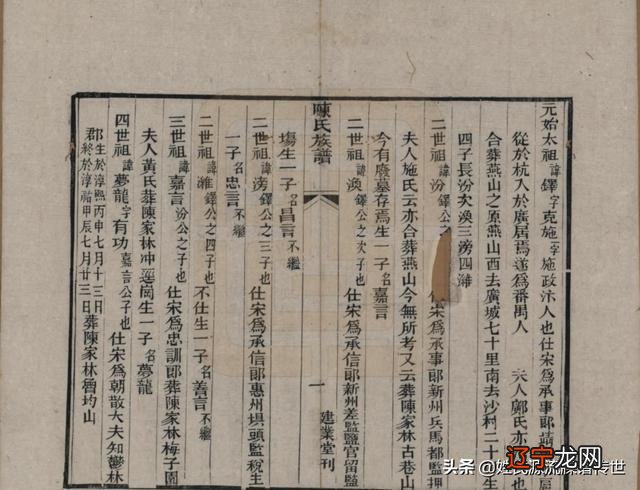 元始太祖諱鐸字克施一字施政汴人也仕宋爲承事郎靖扈
從於杭入於廣居焉遂爲番禺人 夫人鄺氏亦
合葬燕山之原燕山西去廣城七十里南去沙村二十生
四子長汾次渙三滂四濰
二世祖諱汾鐸仕宋爲承事郎新州兵馬都監押
夫人施氏云亦合葬燕山今無所考又云葬陳家林古巷山
今有廢墓存焉生一子名嘉言
二世祖諱渙鐸公之次子也 仕宋爲承信郎新州差監鹽官留監
陳氏族譜 一 建業堂刊
塲生一子名昌言不繼
二世祖諱滂鐸公之三子也 仕宋爲承信郎惠州頭監稅生
一子名忠言不繼
二世祖諱濰鐸公之四子也 不仕生一子名善言不繼
三世祖諱嘉言汾公之子也 仕宋爲忠訓郎葬陳家林梅子園
夫人黃氏葬陳家林冲運崗生一子名夢龍
四世祖諱夢龍字有功嘉言公子也 仕宋爲朝散大夫知鬱林
郡生於淳熙丙申七月十三日終於淳祐甲辰七月廿三日葬陳家林魯均山
头条 @姓氏源流
辽宁龙网